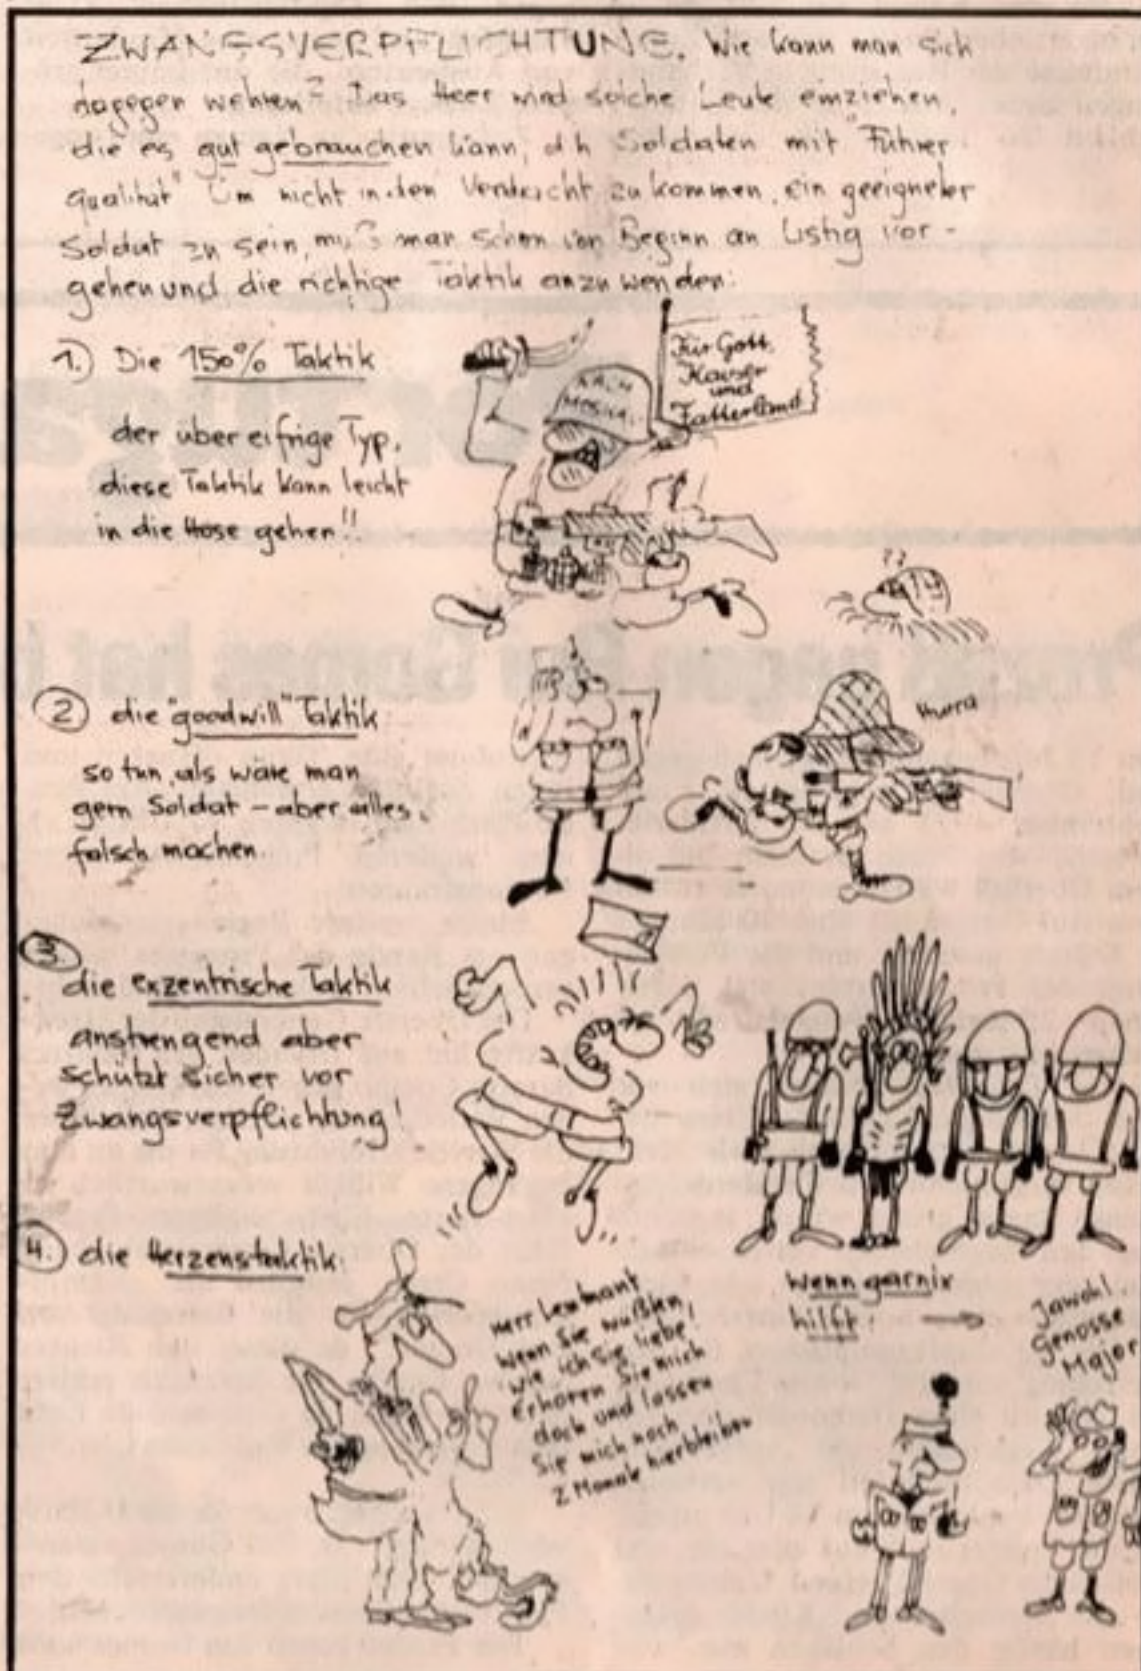 ZWANGSVERPFLICHTUNG. Wie kann man sich
dagegen wehren? Das Heer wird solche Leute einziehen,
die es gut gebrauchen kann, d h Soldaten mit "Führer
qualität" Um nicht in den Verdacht zu kommen, ein geeigneter
Soldat zu sein, muß man schon von Beginn an listig vor-
gehen und die richtige Taktik anzuwenden:
1.) Die 150% Taktik
der übereifrige Typ.
diese Taktik kann leicht
in die Hose gehen!!
NACH
MOSKAU
Für Gott,
Kaiser
und
Fatterland
??
2 die "goodwill" Taktik
so tun, als wäre man
gern Soldat - aber alles
falsch machen
Hurra
3.
die exzentrische Taktik
anstrengend aber
schützt sicher vor
Zwangsverpflichtung!
4.) die Herzenstaktik:
Herr Leutnant
wenn Sie wüßten,
wie ich sie liebe!
Erhören Sie mich
doch und lassen
Sie mich noch
2 Monate hierbleiben
wenn garnix
hilft
Jawohl
Genosse
Major